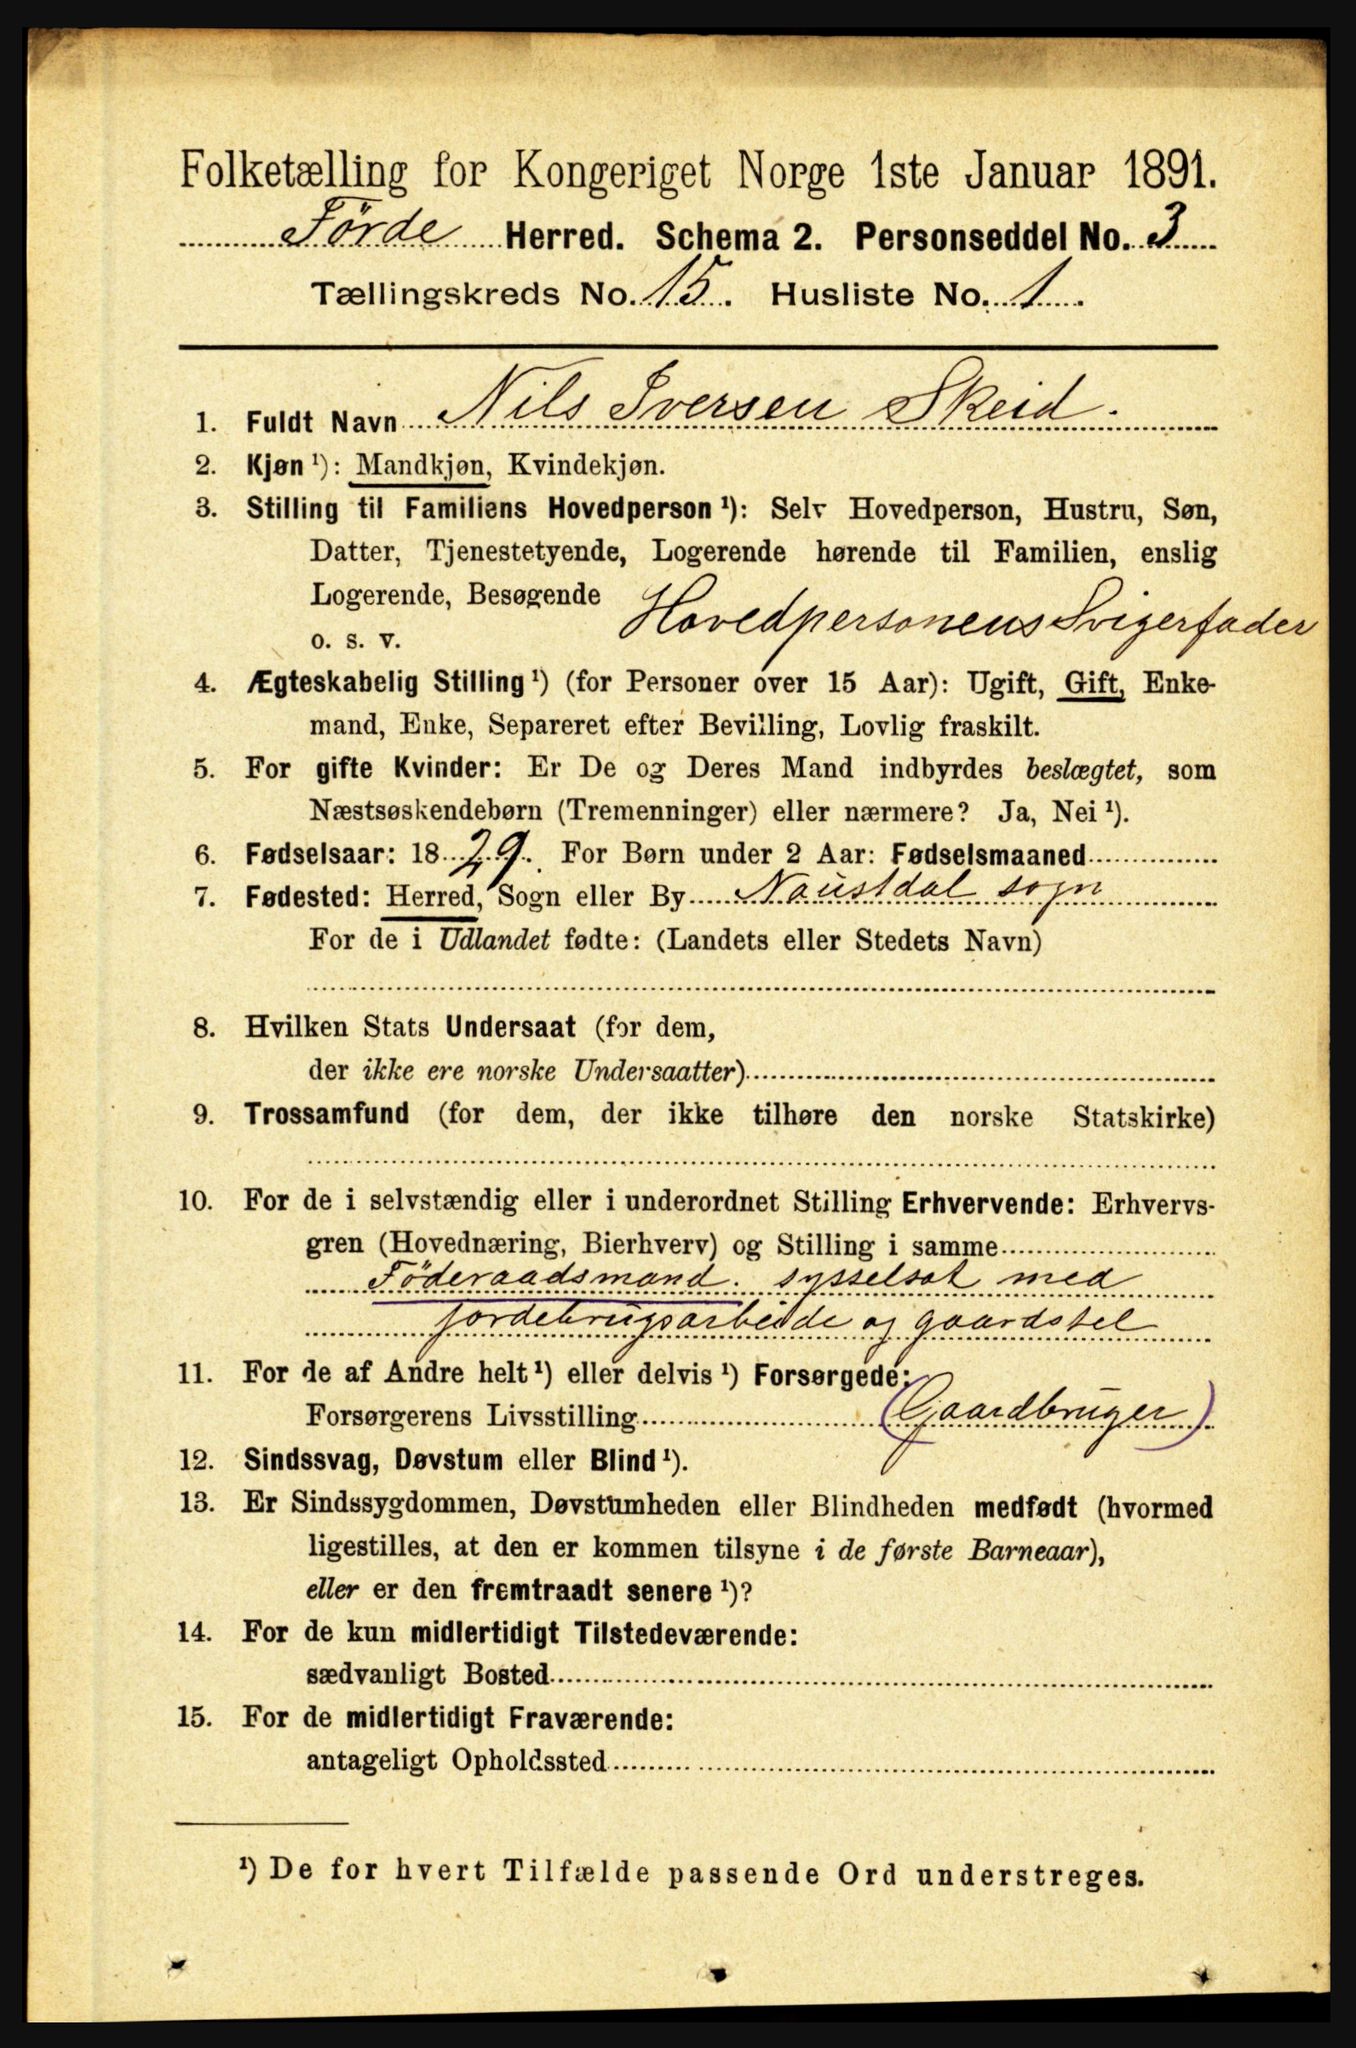 Folketælling for Kongeriget Norge 1ste Januar 1891.
Förde Herred. Schema 2. Personseddel No. 3
Tællingskreds No. 15. Husliste No. 1
1. Fuldt Navn Nils Iversen Skeid.
2. Kjøn ¹): Mandkjøn, Kvindekjøn.
3. Stilling til Familiens Hovedperson ¹): Selv Hovedperson, Hustru, Søn,
Datter, Tjenestetyende, Logerende hørende til Familien, enslig
Logerende, Besøgende
o. s. v. Hovedpersonens Svigerfader
4. Ægteskabelig Stilling ¹) (for Personer over 15 Aar): Ugift, Gift, Enke-
mand, Enke, Separeret efter Bevilling, Lovlig fraskilt.
5. For gifte Kvinder: Er De og Deres Mand indbyrdes beslægtet, som
Næstsøskendebørn (Tremenninger) eller nærmere? Ja, Nei ¹).
6. Fødselsaar: 1829. For Børn under 2 Aar: Fødselsmaaned
7. Fødested: Herred, Sogn eller By Naustdal sogn
For de i Udlandet fødte: (Landets eller Stedets Navn)
8. Hvilken Stats Undersaat (for dem,
der ikke ere norske Undersaatter)
9. Trossamfund (for dem, der ikke tilhøre den norske Statskirke)
10. For de i selvstændig eller i underordnet Stilling Erhvervende: Erhvervs-
gren (Hovednæring, Bierhverv) og Stilling i samme
Föderaadsmand. sysselsat med
jordebrugsarbeide og gaardstel
11. For de af Andre helt ¹) eller delvis ¹) Forsørgede:
Forsørgerens Livsstilling (Gaardbruger)
12. Sindssvag, Døvstum eller Blind ¹).
13. Er Sindssygdommen, Døvstumheden eller Blindheden medfødt (hvormed
ligestilles, at den er kommen tilsyne i de første Barneaar),
eller er den fremtraadt senere ¹)?
14. For de kun midlertidigt Tilstedeværende:
sædvanligt Bosted
15. For de midlertidigt Fraværende:
antageligt Opholdssted
¹) De for hvert Tilfælde passende Ord understreges.